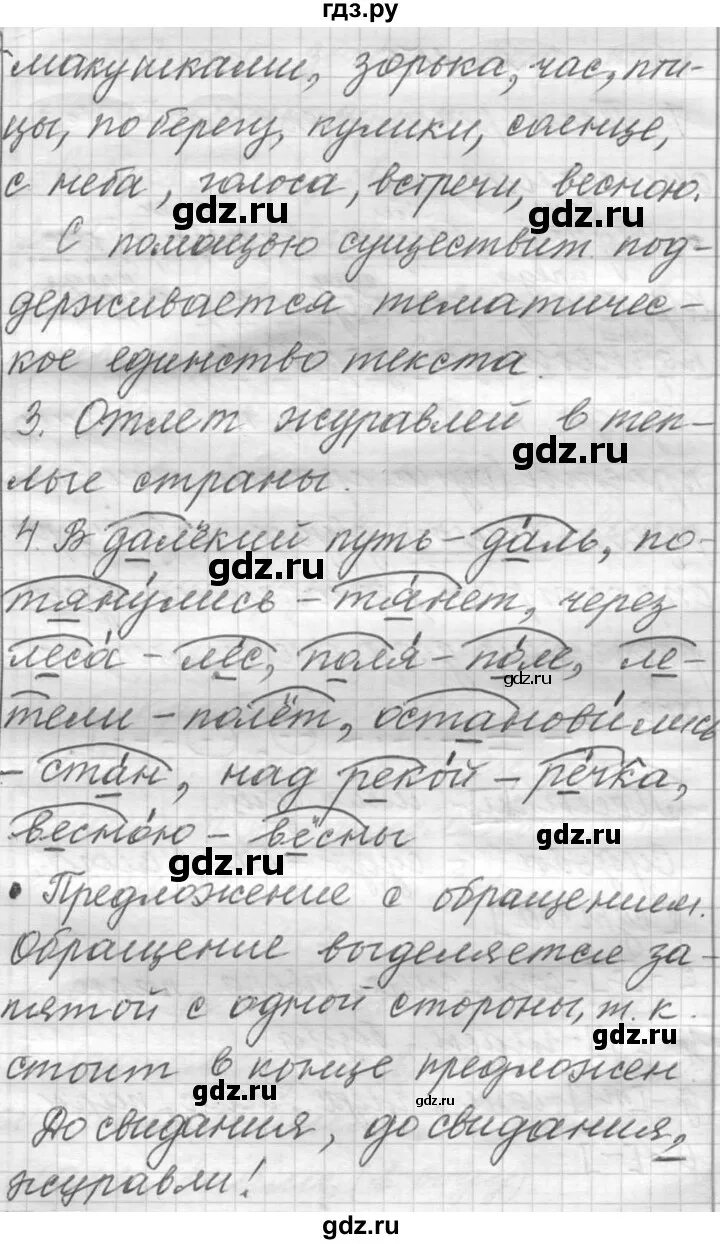 гдз.ру
макушками, зорька, час, пти-
цы, по берегу, кулики, солнце,
с неба, голоса, встречи, весною.
gdz.ru
gdz.ru
С помощью существит. под-
держивается тематичес-
кое единство текста.
3. Отлет журавлей в теп-
gdz.ru
лые страны.
4. В далёкий путь – даль, по-
gdz.ru
тянулись – тянет, через
леса́ – лес, поля́ – поле, ле-
gdz.ru
тели – полёт, останови́лись
– стан, над реко́й – ре́чка,
весно́ю – вёсны
gdz.ru
gdz.ru
• Предложение с обращением.
Обращение выделяется за-
пятой с одной стороны, т. к.
gdz.ru
стоит в конце предложен.
gdz.ru
gdz.ru
До свидания, до свидания,
журавли!
gdz.ru